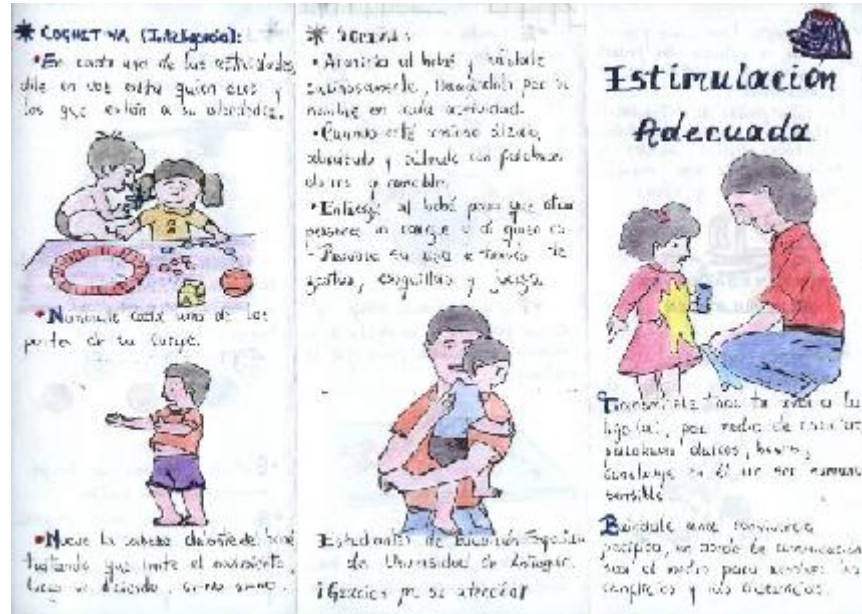 COGNITIVA (Inteligencia):
• En cada una de las actividades,
dile en voz alta quien eres y
los que están a su alrededor.
• Nómbrale cada una de las
partes de su cuerpo.
• Mueve la cabeza delante del bebé,
tratando que imite el movimiento,
• Acaricia al bebé y
llamándolo por su
nombre en cada actividad.
• Cuando esté
con palabras
dulces y amables.
• Entrega al bebé para que otras
personas lo
su risa a través de
y juegos.
Estudiantes de Educación Especial
de Universidad de Antioquia.
¡Gracias por su atención!
Estimulación
Adecuada
Transmítele todo tu amor a tu
hijo (a), por medio de caricias,
palabras dulces, besos,
construye en él un ser humano
sensible.
Bríndale una convivencia
pacífica, en donde la comunicación
sea el medio para resolver los
conflictos y